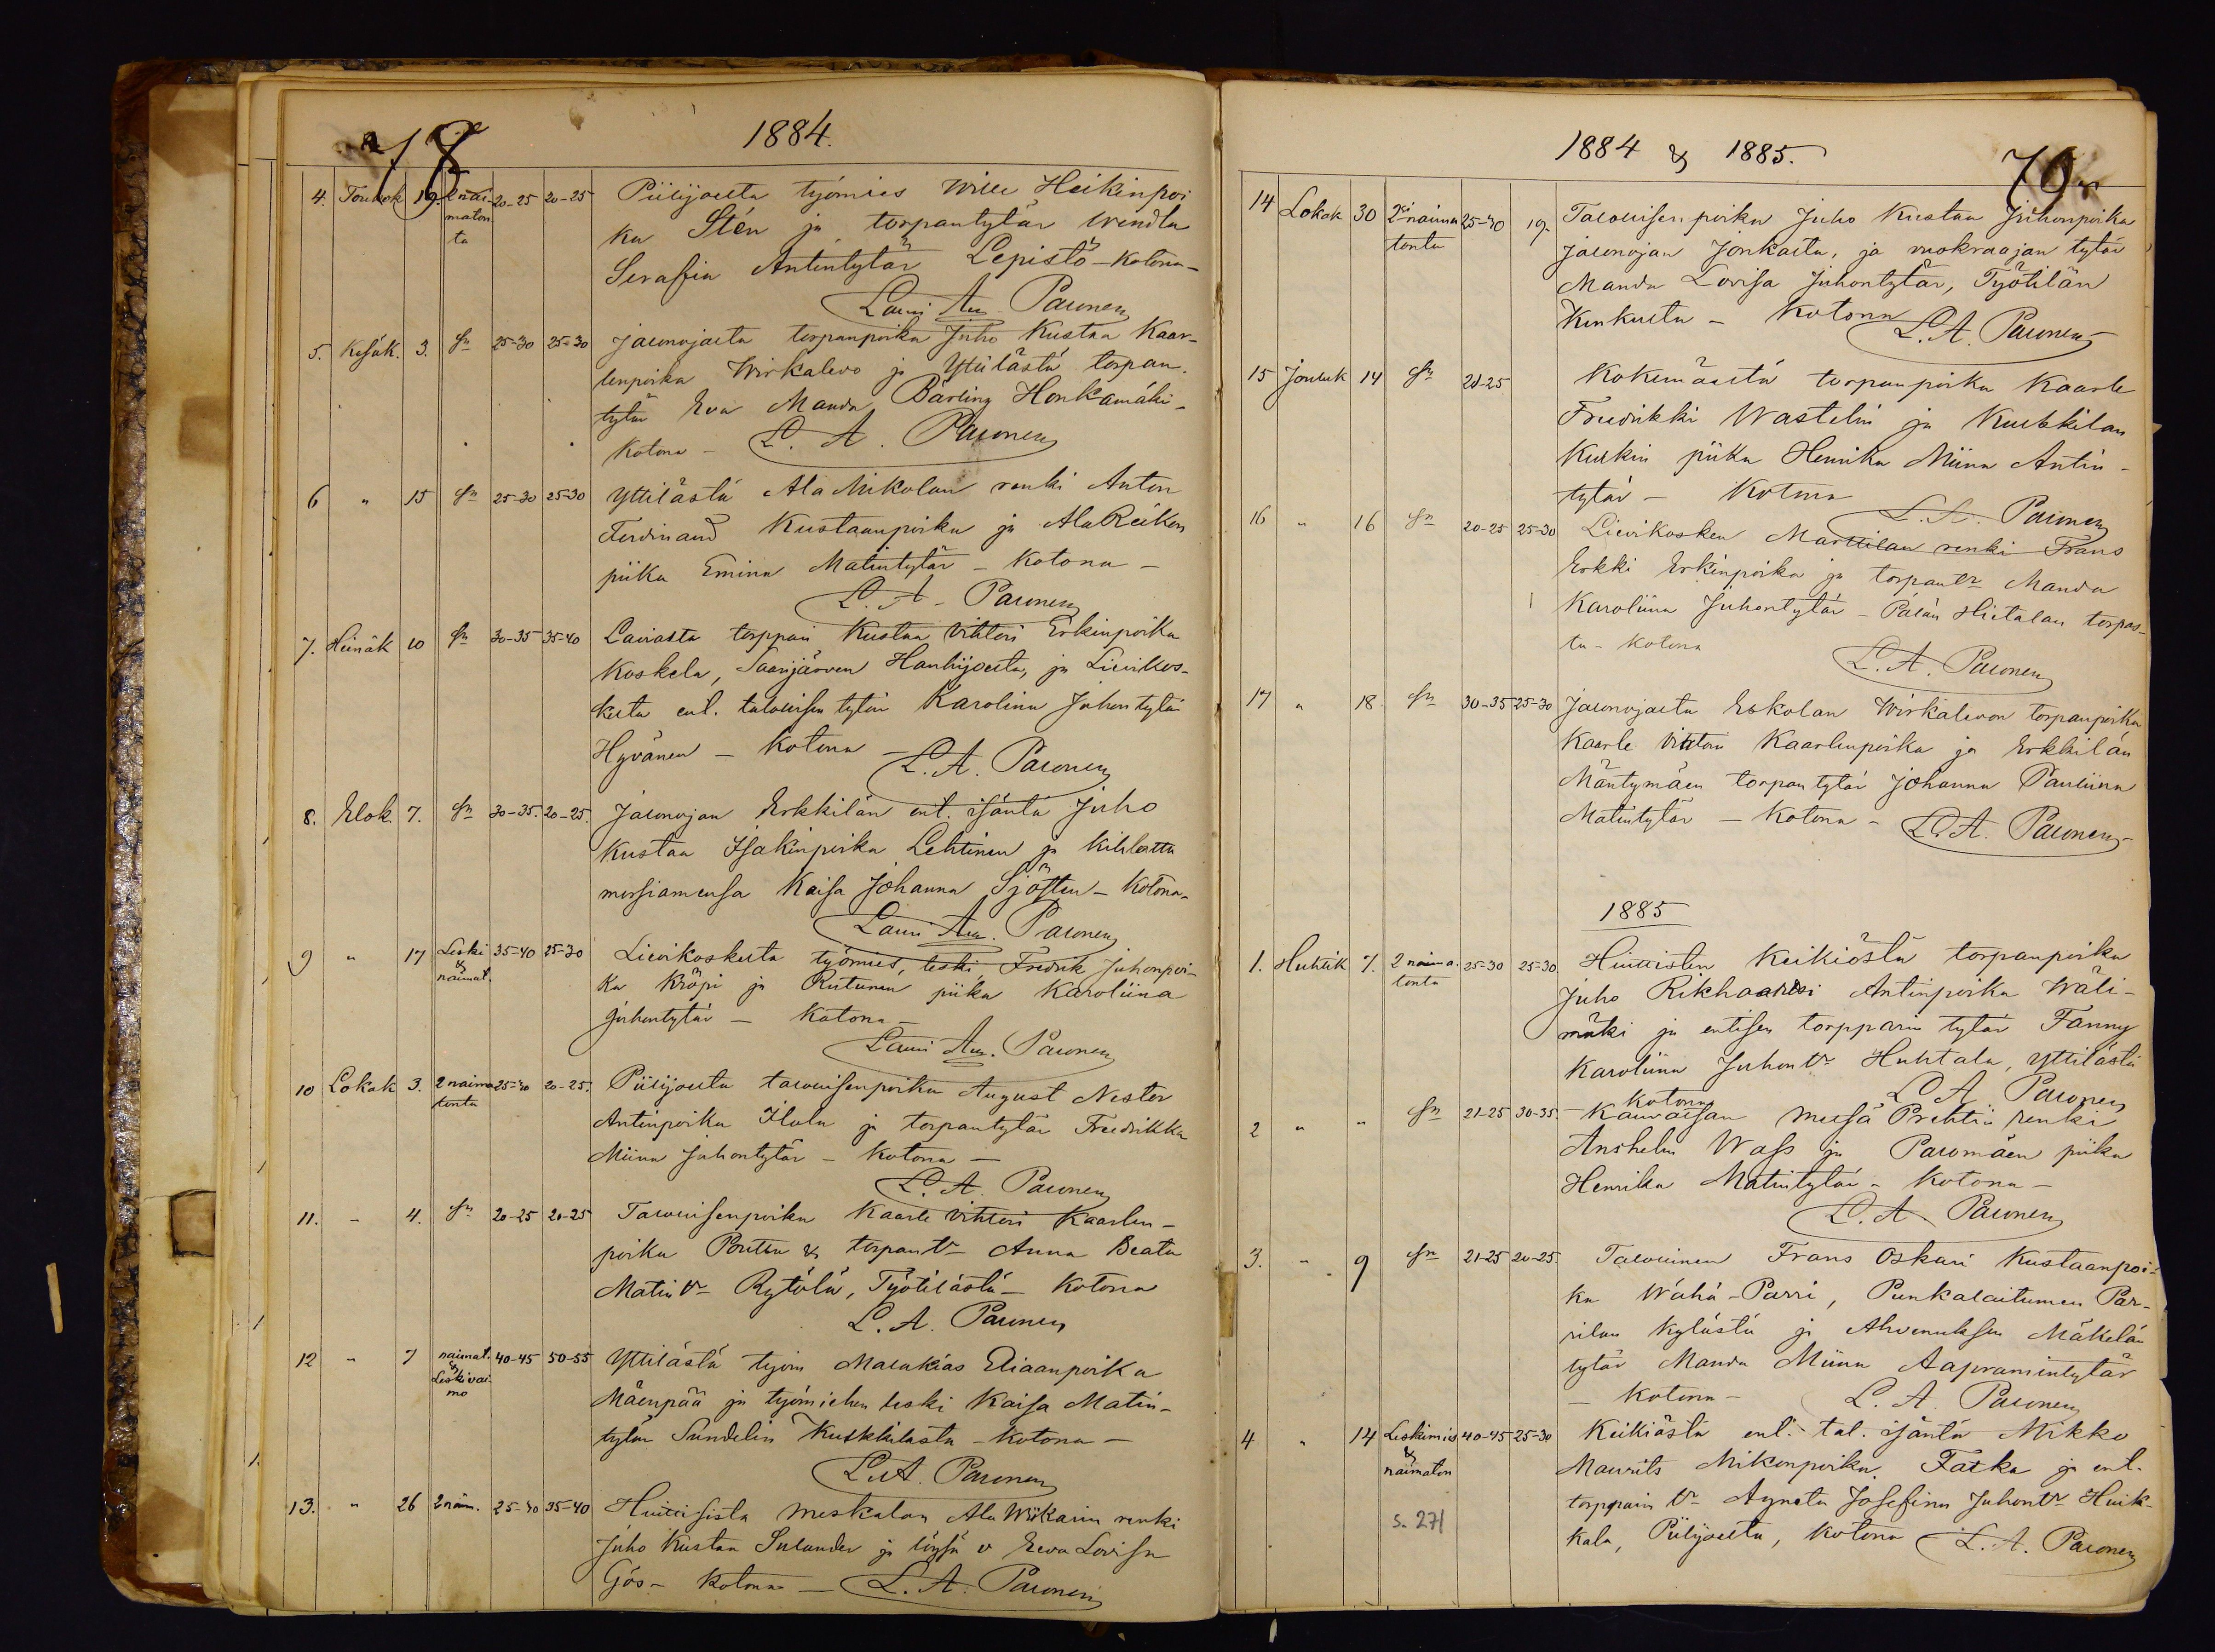 78
1884.
4. Toukok 19. 2 nai- 20-25 20-25 Piilijoelta työmies Wille Heikinpoi
maton ka Stén ja torpantytär Wendla
ta Serafia Antintytär Lepistö - Kotona -
Lauri Au. Paunen
5. Kesäk. 3. Sn 25-30 25-30 Jalonojalta torpanpoika Juho Kustaa Kaar-
lenpoika Wirkalevo ja Yttilästä torpan-
tytär Eva Manda Bärling Honkamäki -
Kotona - L. A. Paunen
6 " 15 Sn 25-30 25-30 Yttilästä Ala Mikolan renki Anton
Ferdinand Kustaanpoika ja Ala Reikon
piika Emina Matintytär - Kotona -
L. A. Paunen
7. Heinäk 10 Sn 30-35 35-40 Lauvasta torppari Kustaa Vihtori Erkinpoika
Koskela, Saarijärven Hanhijoelta, ja Lievikos-
kelta ent. talollisen tytär Karolina Juhontytär
Hyvänen - Kotona - L. A. Paunen
8. Elok. 7. Sn 30-35. 20-25. Jalonojan Erkkilän ent. isäntä Juho
Kustaa Isakinpoika Lehtinen ja kihlattu
morsiamensa Kaisa Johanna Sjösten - Kotona -
Lauri Au. Paunen
9 " 17 Leski 35-40 25-30 Lievikoskelta työmies, leski, Fredrik Juhonpoi-
& naimat. ka Kröpi ja Rutunen piika Karoliina
Juhontytär - Kotona -
Lauri Au. Paunen
10 Lokak 3. 2 naima 25-30 20-25. Piilijoelta talollisenpoika August Nestor
tonta Antinpoika Ilola ja torpantytär Fredrikka
Miina Juhontytär - Kotona -
L. A. Paunen
11. - 4. Sn 20-25 20-25 Talollisenpoika Kaarle Vihtori Kaarlen-
poika Pouttu & torpantr Anna Beata
Matintr Rytölä, Työtilästä - Kotona
L. A. Paunen
12 " 7 naimat. 40-45 50-55 Yttilästä työm Malakias Eliaanpoika
& Leskivai Mäenpää ja työmiehen leski Kaisa Matin-
mo tytär Sundelin Kukkilasta - Kotona -
L. A. Paunen
13. " 26 2 näm. 25-30 35-40 Huittisista Meskalan Ala Wiikarin renki
Juho Kustaa Sulander ja löysä v Eeva Lovisa
Gös - Kotona - L. A. Paunen
1884 & 1885.
79
14 Lokak 30 2 naima 25-30 19. Talollisenpoika Juho Kustaa Juhonpoika
tonta Jalonojan Jonkasta, ja vuokraajan tytär
Manda Lovisa Juhontytär, Työtilän
Kinkulta - Kotona L. A. Paunen
15 Jouluk 14 Sn 20-25 Kokemäeltä torpanpoika Kaarle
Fredrikki Wastelin ja Kukkilan
Kulkin piika Henrika Miina Antin-
tytär - Kotona
L. A. Paunen
16 " 16 Sn 20-25 25-30 Lievikosken Marttilan renki Frans
Erkki Erkinpoika ja torpantr Manda
Karoliina Juhontytär - Pälän Hietalan torpas-
ta - Kotona
L. A. Paunen
17 " 18 Sn 30-35 25-30 Jalonojalta Eskolan Wirkalevon torpanpoika
Kaarle Vihtori Kaarlenpoika ja Erkkilän
Mäntymäen torpantytär Johanna Pauliina
Matintytär - Kotona - L. A. Paunen
1885
1. Huhtik 7. 2 naima 25-30 25-30 Huittisten Keikiöstä torpanpoika
tonta Juho Rikhaardi Antinpoika Wäli-
mäki ja entisen torpparin tytär Fanny
Karoliina Juhontr Huhtala, Yttilästä
Kotona L. A. Paunen
2 " " Sn 21-25 30-35. Kauvatsan Meisä Prehtin renki
Anshelm Wass ja Palomäen piika
Henrika Matintytär - Kotona -
L. A. Paunen
3. " 9 Sn 21-25 20-25. Talollinen Frans Oskari Kustaanpoi-
ka Wähä-Parri, Punkalaitumen Par-
rilan kylästä ja Ahvenuksen Mäkelän
tytär Manda Miina Aapramintytär
- Kotona - L. A. Paunen
4 " 14 Leskimies 40-45 25-30 Keikiöstä ent. tal. isäntä Mikko
& naimaton Maurits Mikonpoika Fatka ja ent.
torpparin tr Agneta Josefina Juhontr Huik-
s. 271
kala, Piilijoelta, Kotona L. A. Paunen